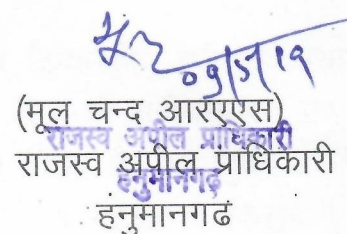 09/5/19
(मूल चन्द आरएएस)
राजस्व अपील प्राधिकारी
राजस्व अपील प्राधिकारी
हनुमानगढ़
हनुमानगढ